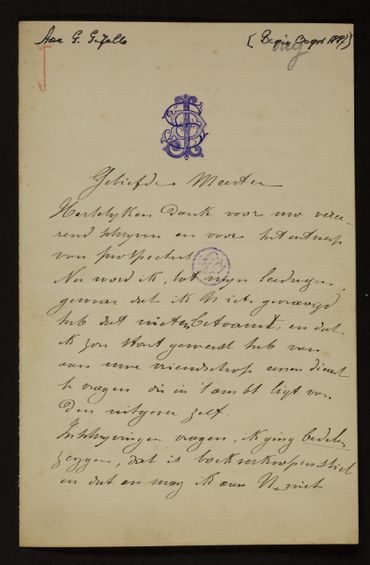 Aan G. Gezelle
[Begin Oogst 1897]
Geliefde Meester
Hertelyken Dank voor uw vereerend
schryven en voor het ontwerp
van prospectus.
Nu word ik, tot myn leedwezen,
gewaar dat ik U iets gevraagd
heb dat niet en betaamt, en dat
ik zoo stout geweest heb van
aan uwe vriendschap eenen dienst
te vragen die in 't ambt ligt van
den uitgever zelf.
Inschryvingen vragen, ik ging bedelen
zeggen, dat is boekverkoopersstiel
en dat en mag ik aan U niet